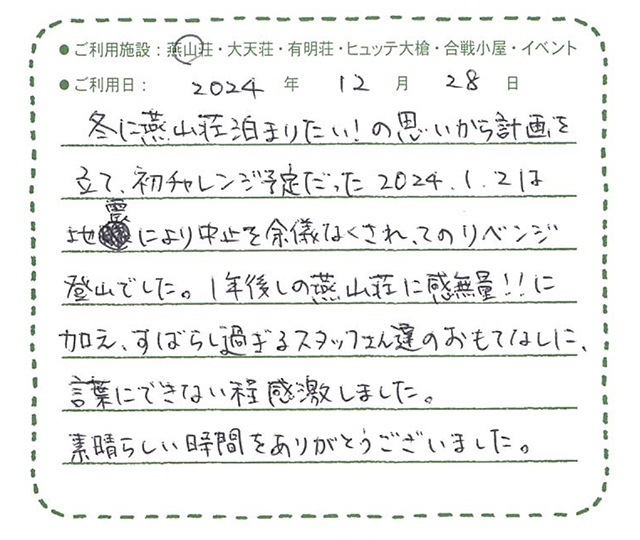 ●ご利用施設：燕山荘・大天荘・有明荘・ヒュッテ大槍・合戦小屋・イベント
●ご利用日： 2024 年 12 月 28 日
冬に燕山荘泊まりたい！の思いから計画を
立て、初チャレンジ予定だった2024.1.2は
地震により中止を余儀なくされ、てのリベンジ
登山でした。1年後しの燕山荘に感無量！！に
加え、すばらし過ぎるスタッフさん達のおもてなしに、
言葉にできない程感激しました。
素晴らしい時間をありがとうございました。